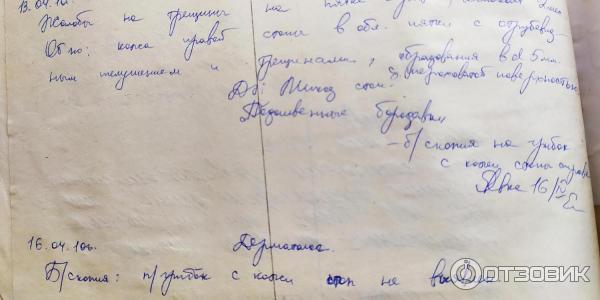 13.04.10г.
Жалобы на трещины на пятке
Об-но: кожа правой стопы в обл. пятки с отрубевид-
ным шелушением и трещинами, образования в d 5 мм
с шероховатой поверхностью
Ds: Микоз стоп.
Подошвенные бородавки
- б/скопия на грибок
с кожи стопы справа
Явка 16/IV
16.04.10г. Дерматолог.
Б/скопия: п/грибок с кожи стоп не
ОТЗОВИК